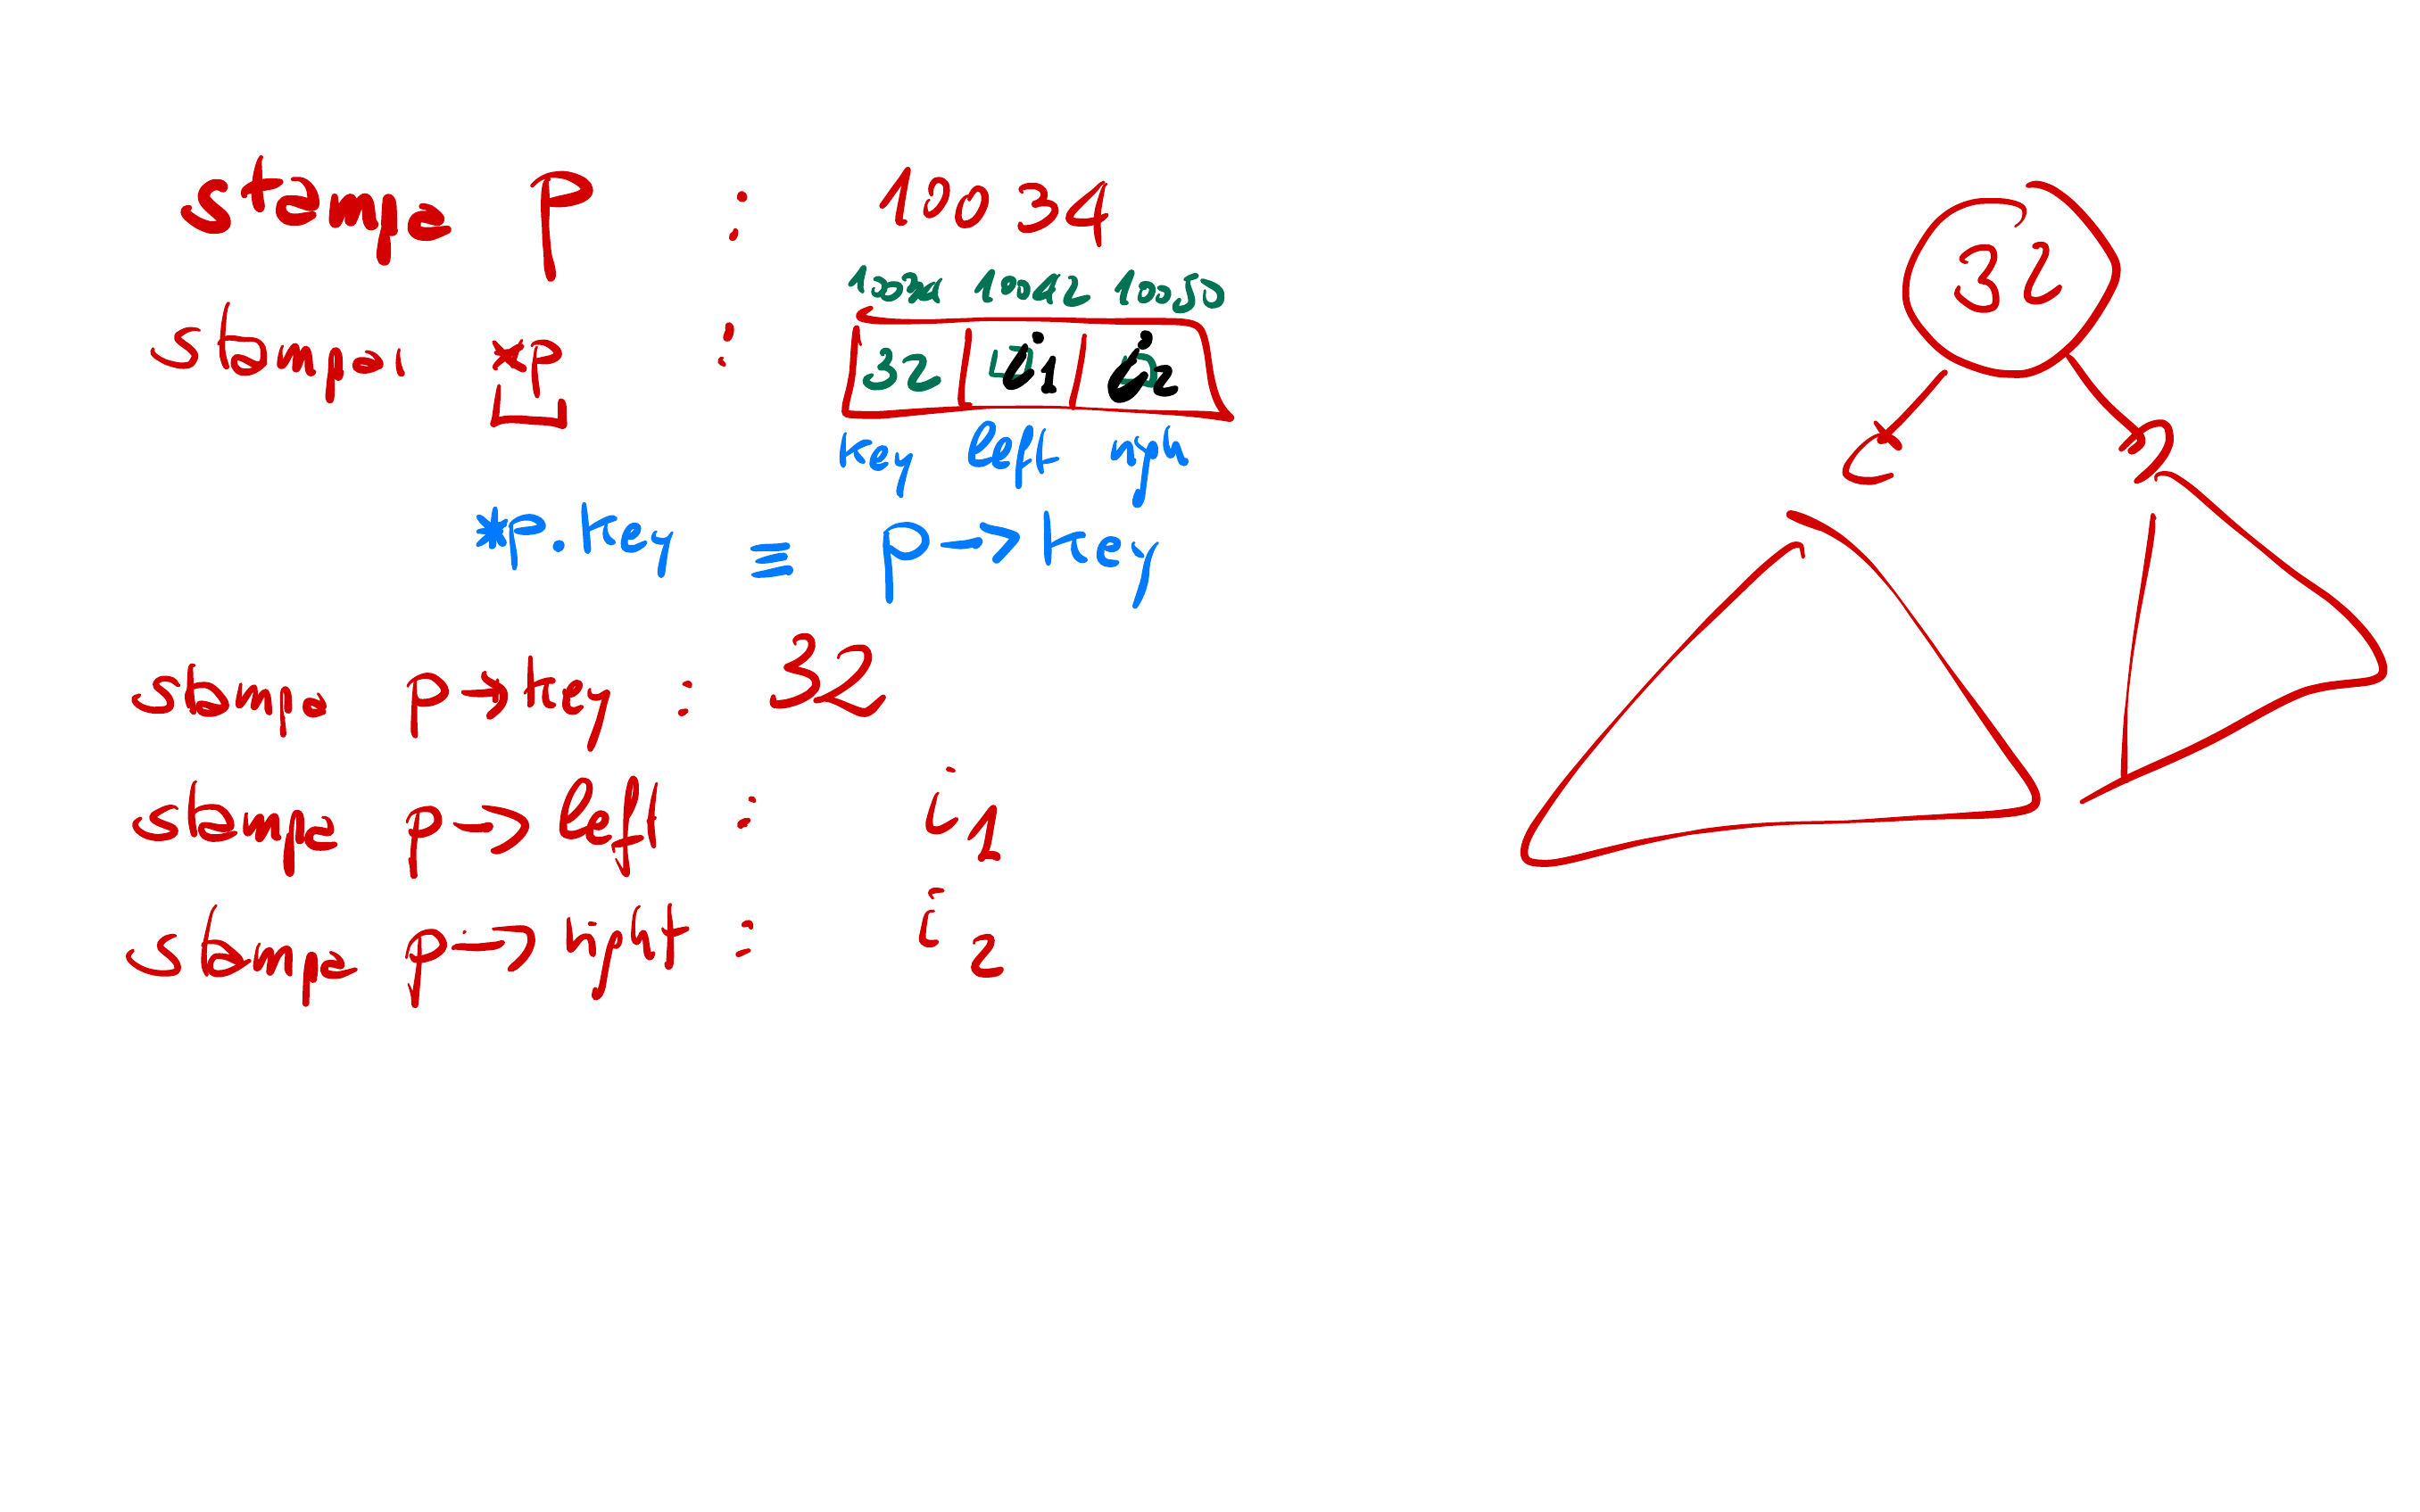 stampa P : 10034
32
stampa *P :
10034 10042 10050
32 i1 i2
key left righ
*P.key ≡ p→key
stampa p→key : 32
stampa p→left : i1
stampa p→right : i2